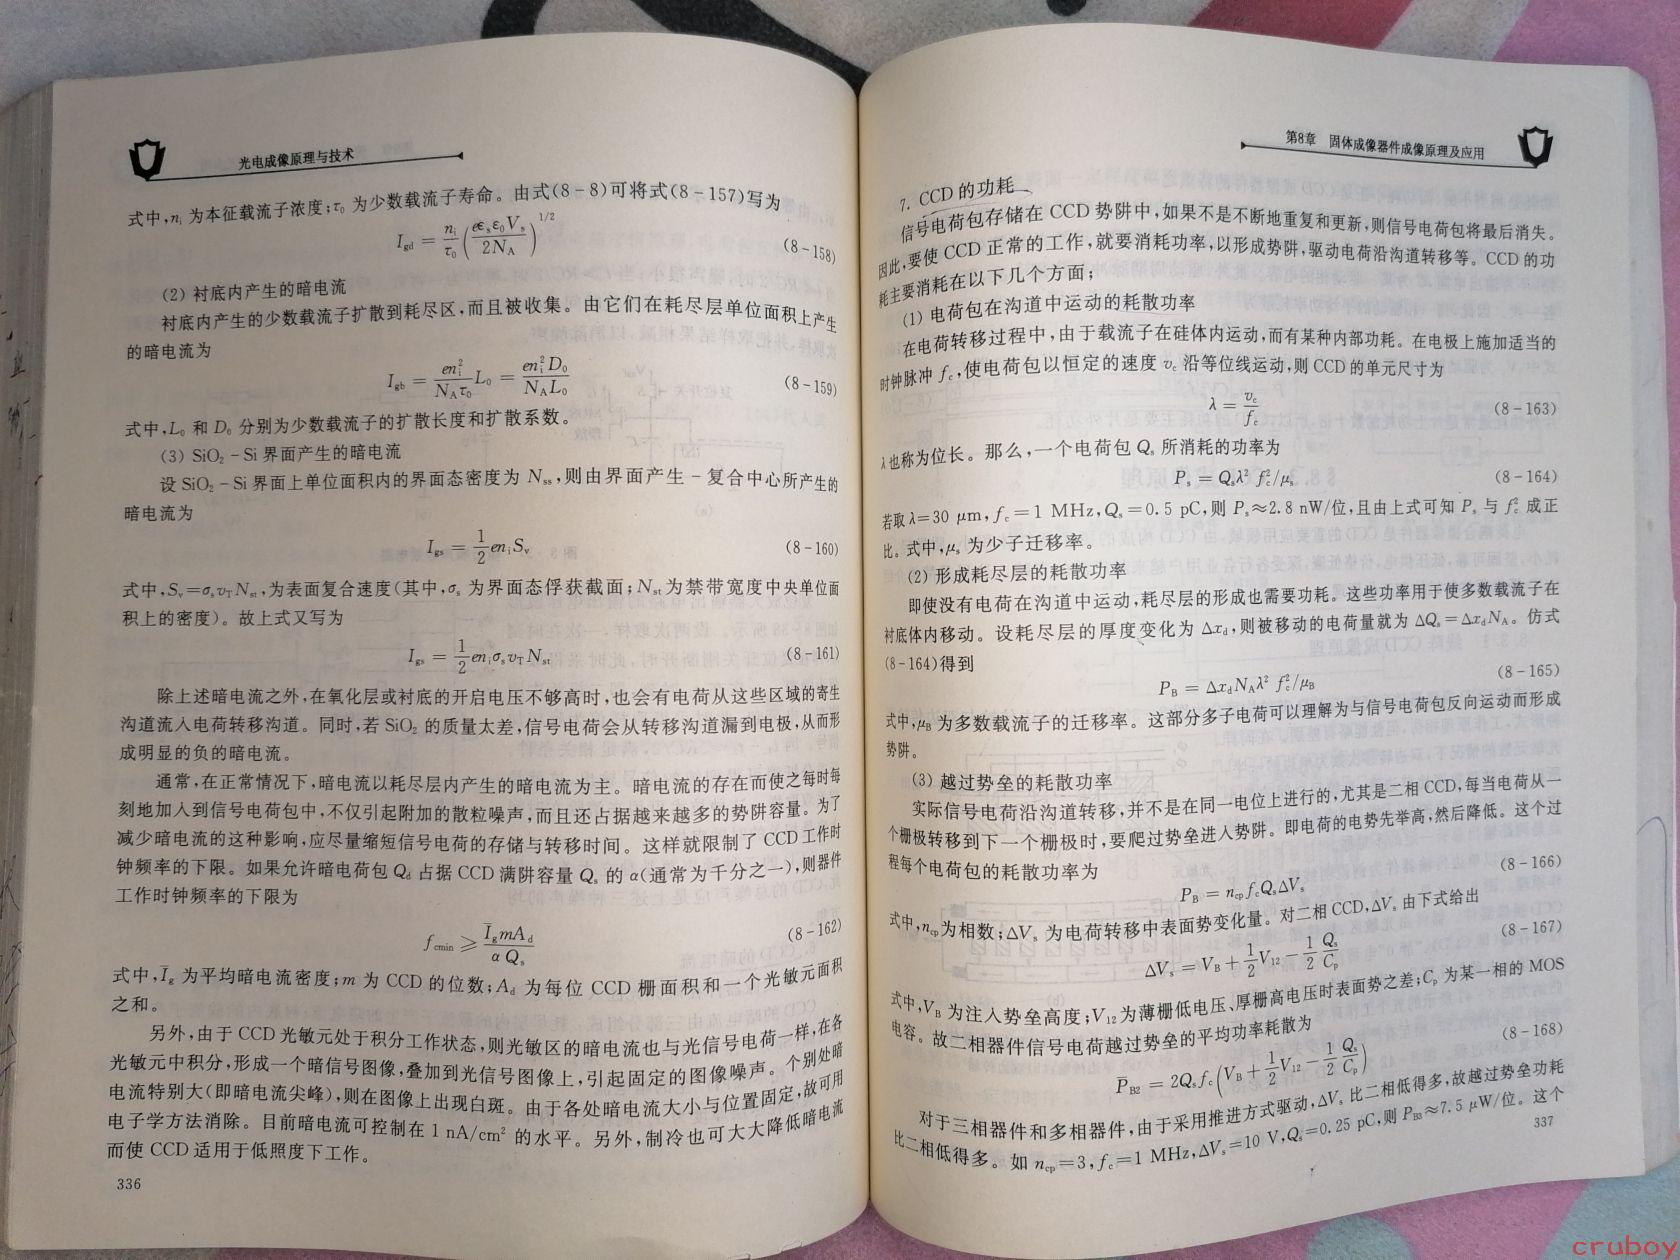 光电成像原理与技术
式中,nᵢ 为本征载流子浓度;τ₀ 为少数载流子寿命。由式(8-8)可将式(8-157)写为
I_gd = nᵢ/τ₀ (eεₛε₀Vₛ/2N_A)^1/2 (8-158)
(2) 衬底内产生的暗电流
衬底内产生的少数载流子扩散到耗尽区,而且被收集。由它们在耗尽层单位面积上产生
的暗电流为
I_gb = enᵢ²/N_Aτ₀ L₀ = enᵢ²D₀/N_AL₀ (8-159)
式中,L₀ 和 D₀ 分别为少数载流子的扩散长度和扩散系数。
(3) SiO₂-Si 界面产生的暗电流
设 SiO₂-Si 界面上单位面积内的界面态密度为 N_ss,则由界面产生-复合中心所产生的
暗电流为
I_gs = 1/2 enᵢS_v (8-160)
式中,S_v=σₛv_TN_st,为表面复合速度(其中,σₛ 为界面态俘获截面;N_st 为禁带宽度中央单位面
积上的密度)。故上式又写为
I_gs = 1/2 enᵢσₛv_TN_st (8-161)
除上述暗电流之外,在氧化层或衬底的开启电压不够高时,也会有电荷从这些区域的寄生
沟道流入电荷转移沟道。同时,若 SiO₂ 的质量太差,信号电荷会从转移沟道漏到电极,从而形
成明显的负的暗电流。
通常,在正常情况下,暗电流以耗尽层内产生的暗电流为主。暗电流的存在而使之每时每
刻地加入到信号电荷包中,不仅引起附加的散粒噪声,而且还占据越来越多的势阱容量。为了
减少暗电流的这种影响,应尽量缩短信号电荷的存储与转移时间。这样就限制了 CCD 工作时
钟频率的下限。如果允许暗电荷包 Q_d 占据 CCD 满阱容量 Qₛ 的 α(通常为千分之一),则器件
工作时钟频率的下限为
f_cmin ≥ Ī_gmA_d/αQₛ (8-162)
式中,Ī_g 为平均暗电流密度;m 为 CCD 的位数;A_d 为每位 CCD 栅面积和一个光敏元面积
之和。
另外,由于 CCD 光敏元处于积分工作状态,则光敏区的暗电流也与光信号电荷一样,在各
光敏元中积分,形成一个暗信号图像,叠加到光信号图像上,引起固定的图像噪声。个别处暗
电流特别大(即暗电流尖峰),则在图像上出现白斑。由于各处暗电流大小与位置固定,故可用
电子学方法消除。目前暗电流可控制在 1 nA/cm² 的水平。另外,制冷也可大大降低暗电流
而使 CCD 适用于低照度下工作。
336
第8章 固体成像器件成像原理及应用
7. CCD 的功耗
信号电荷包存储在 CCD 势阱中,如果不是不断地重复和更新,则信号电荷包将最后消失。
因此,要使 CCD 正常的工作,就要消耗功率,以形成势阱,驱动电荷沿沟道转移等。CCD 的功
耗主要消耗在以下几个方面;
(1) 电荷包在沟道中运动的耗散功率
在电荷转移过程中,由于载流子在硅体内运动,而有某种内部功耗。在电极上施加适当的
时钟脉冲 f_c,使电荷包以恒定的速度 v_c 沿等位线运动,则 CCD 的单元尺寸为
λ = v_c/f_c (8-163)
λ也称为位长。那么,一个电荷包 Qₛ 所消耗的功率为
Pₛ = Qₛλ² f_c²/μₛ (8-164)
若取 λ=30 μm,f_c=1 MHz,Qₛ=0.5 pC,则 Pₛ≈2.8 nW/位,且由上式可知 Pₛ 与 f_c² 成正
比。式中,μₛ 为少子迁移率。
(2) 形成耗尽层的耗散功率
即使没有电荷在沟道中运动,耗尽层的形成也需要功耗。这些功率用于使多数载流子在
衬底体内移动。设耗尽层的厚度变化为 Δx_d,则被移动的电荷量就为 ΔQₛ=Δx_dN_A。仿式
(8-164)得到
P_B = Δx_dN_Aλ² f_c²/μ_B (8-165)
式中,μ_B 为多数载流子的迁移率。这部分多子电荷可以理解为与信号电荷包反向运动而形成
势阱。
(3) 越过势垒的耗散功率
实际信号电荷沿沟道转移,并不是在同一电位上进行的,尤其是二相 CCD,每当电荷从一
个栅极转移到下一个栅极时,要爬过势垒进入势阱。即电荷的电势先举高,然后降低。这个过
程每个电荷包的耗散功率为
P_B = n_cp f_cQₛΔVₛ (8-166)
式中,n_cp为相数;ΔVₛ 为电荷转移中表面势变化量。对二相 CCD,ΔVₛ 由下式给出
ΔVₛ = V_B + 1/2 V₁₂ - 1/2 Qₛ/C_p (8-167)
式中,V_B 为注入势垒高度;V₁₂为薄栅低电压、厚栅高电压时表面势之差;C_p 为某一相的 MOS
电容。故二相器件信号电荷越过势垒的平均功率耗散为
P̄_B2 = 2Qₛf_c(V_B + 1/2 V₁₂ - 1/2 Qₛ/C_p) (8-168)
对于三相器件和多相器件,由于采用推进方式驱动,ΔVₛ 比二相低得多,故越过势垒功耗
比二相低得多。如 n_cp=3,f_c=1 MHz,ΔVₛ=10 V,Qₛ=0.25 pC,则 P_B3≈7.5 μW/位。这个
337
cruboy